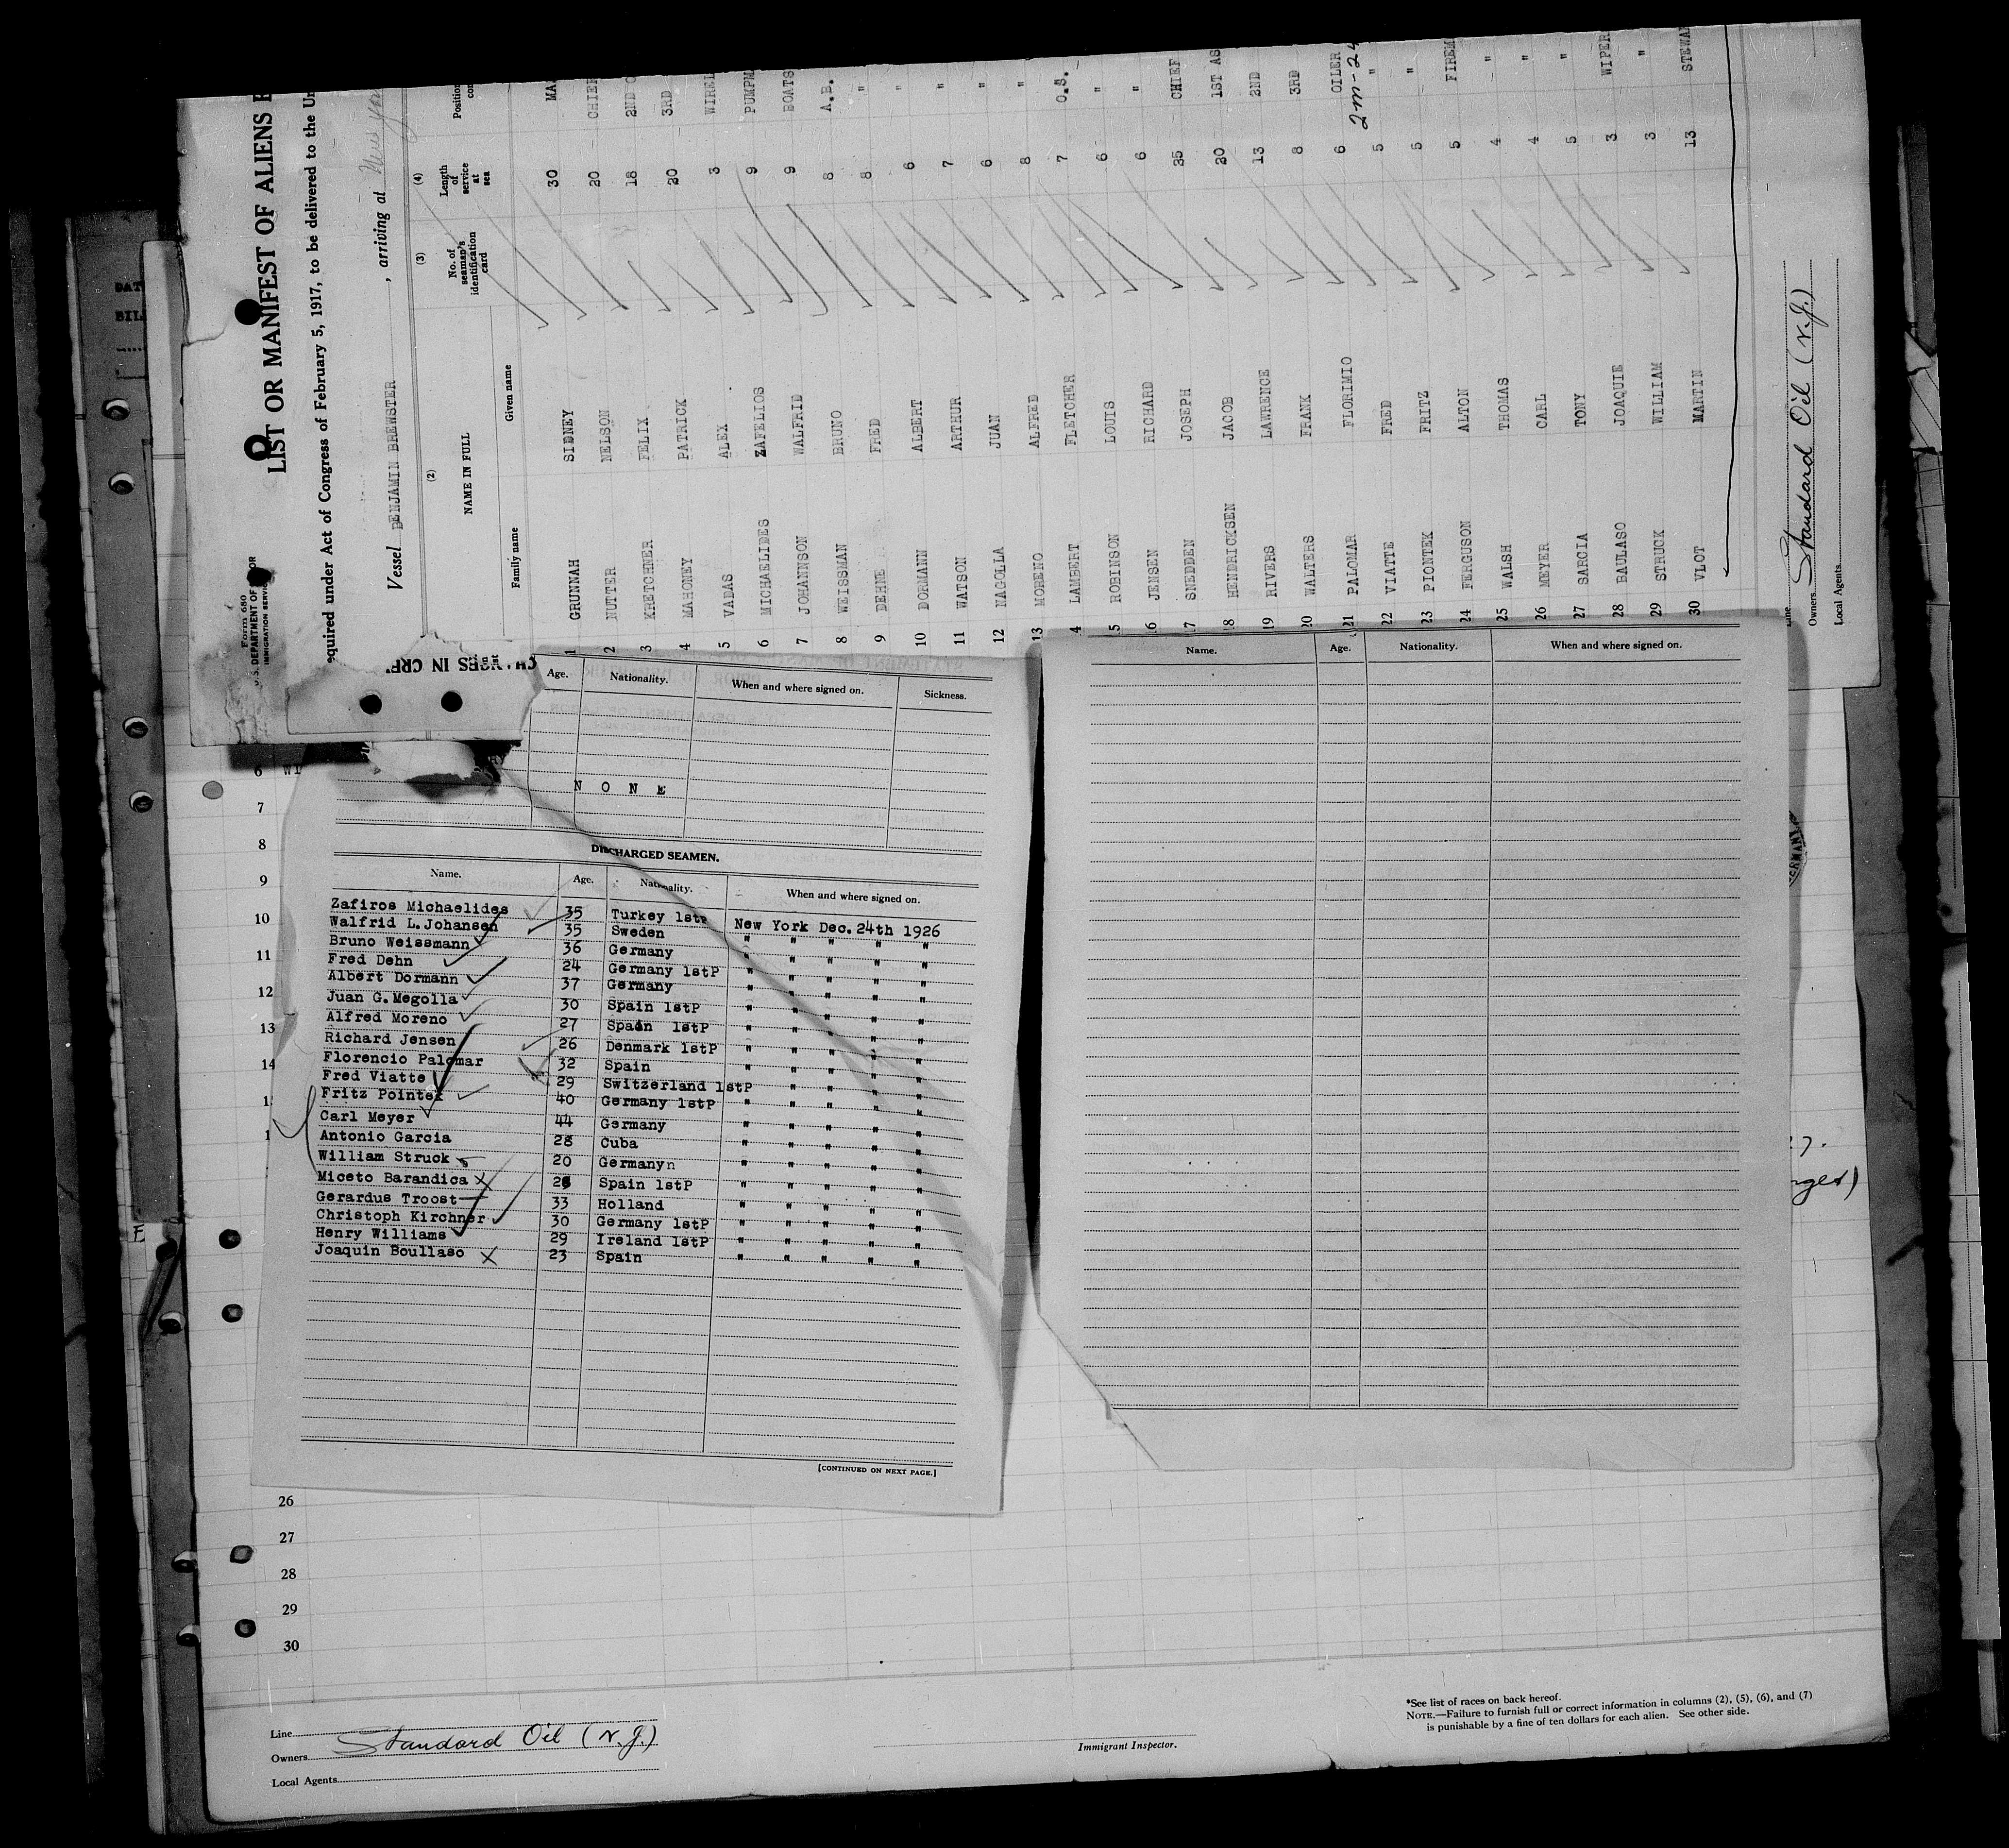 Form 680
U.S. DEPARTMENT OF
IMMIGRATION SERVICE
LIST OR MANIFEST OF ALIENS
equired under Act of Congress of February 5, 1917, to be delivered to the
Vessel BENJAMIN BREWSTER , arriving at New
(2) (3) (4)
NAME IN FULL No. of seaman's identification card Length of service at sea Position
Family name Given name
1 GRUNNAH SIDNEY 30
2 NUTTER NELSON 20 CHIEF
3 KRETCHNER FELIX 18 2ND
4 MAHONEY PATRICK 20 3RD
5 VADAS ALEX 3 WIREL
6 MICHAELIDES ZAFELIOS 9 PUMPM
7 JOHANNSON WALFRID 9 BOATS
8 WEISSMAN BRUNO 8 A.B.
9 DEHNE FRED 8 "
10 DORMANN ALBERT 6 "
11 WATSON ARTHUR 7 "
12 NAGOLLA JUAN 6 "
13 MORENO ALFRED 8 "
4 LAMBERT FLETCHER 7 O.S.
5 ROBINSON LOUIS 6 "
6 JENSEN RICHARD 6 "
7 SNEDDEN JOSEPH 25 CHIEF
8 HENDRICKSEN JACOB 20 1ST AS
19 RIVERS LAWRENCE 13 2ND
20 WALTERS FRANK 8 3RD
21 PALOMAR FLORIMIO 6 OILER
2m-24
22 VIATTE FRED 5 "
23 PIONTEK FRITZ 5 "
24 FERGUSON ALTON 5 FIREM
25 WALSH THOMAS 4 "
26 MEYER CARL 4 "
27 SARCIA TONY 5 "
28 BAULASO JOAQUIE 3 WIPER
29 STRUCK WILLIAM 3 "
30 VLOT MARTIN 13 STEWA
Owners Standard Oil (N.J.)
Local Agents
CHANGES IN CRE
Age. Nationality. When and where signed on. Sickness.
N O N E
DISCHARGED SEAMEN.
Name. Age. Nationality. When and where signed on.
Zafiros Michaelides 35 Turkey 1stP New York Dec. 24th 1926
Walfrid L. Johansen 35 Sweden " " " " "
Bruno Weissmann 36 Germany " " " " "
Fred Dehn 24 Germany 1stP " " " " "
Albert Dormann 37 Germany " " " " "
Juan G. Megolla 30 Spain 1stP " " " " "
Alfred Moreno 27 Spain 1stP " " " " "
Richard Jensen 26 Denmark 1stP " " " " "
Florencio Palomar 32 Spain " " " " "
Fred Viatte 29 Switzerland 1stP " " " "
Fritz Pointek 40 Germany 1stP " " " " "
Carl Meyer 44 Germany " " " " "
Antonio Garcia 28 Cuba " " " " "
William Struck 20 Germanyn " " " " "
Miceto Barandica 28 Spain 1stP " " " " "
Gerardus Troost 33 Holland " " " " "
Christoph Kirchner 30 Germany 1stP " " " " "
Henry Williams 29 Ireland 1stP " " " " "
Joaquin Boullaso 23 Spain " " " " "
[CONTINUED ON NEXT PAGE.]
Name. Age. Nationality. When and where signed on.
6
7
8
9
10
11
12
13
14
26
27
28
29
30
Line
Owners Standard Oil (N.J.)
Local Agents
Immigrant Inspector.
*See list of races on back hereof.
NOTE.—Failure to furnish full or correct information in columns (2), (5), (6), and (7)
is punishable by a fine of ten dollars for each alien. See other side.